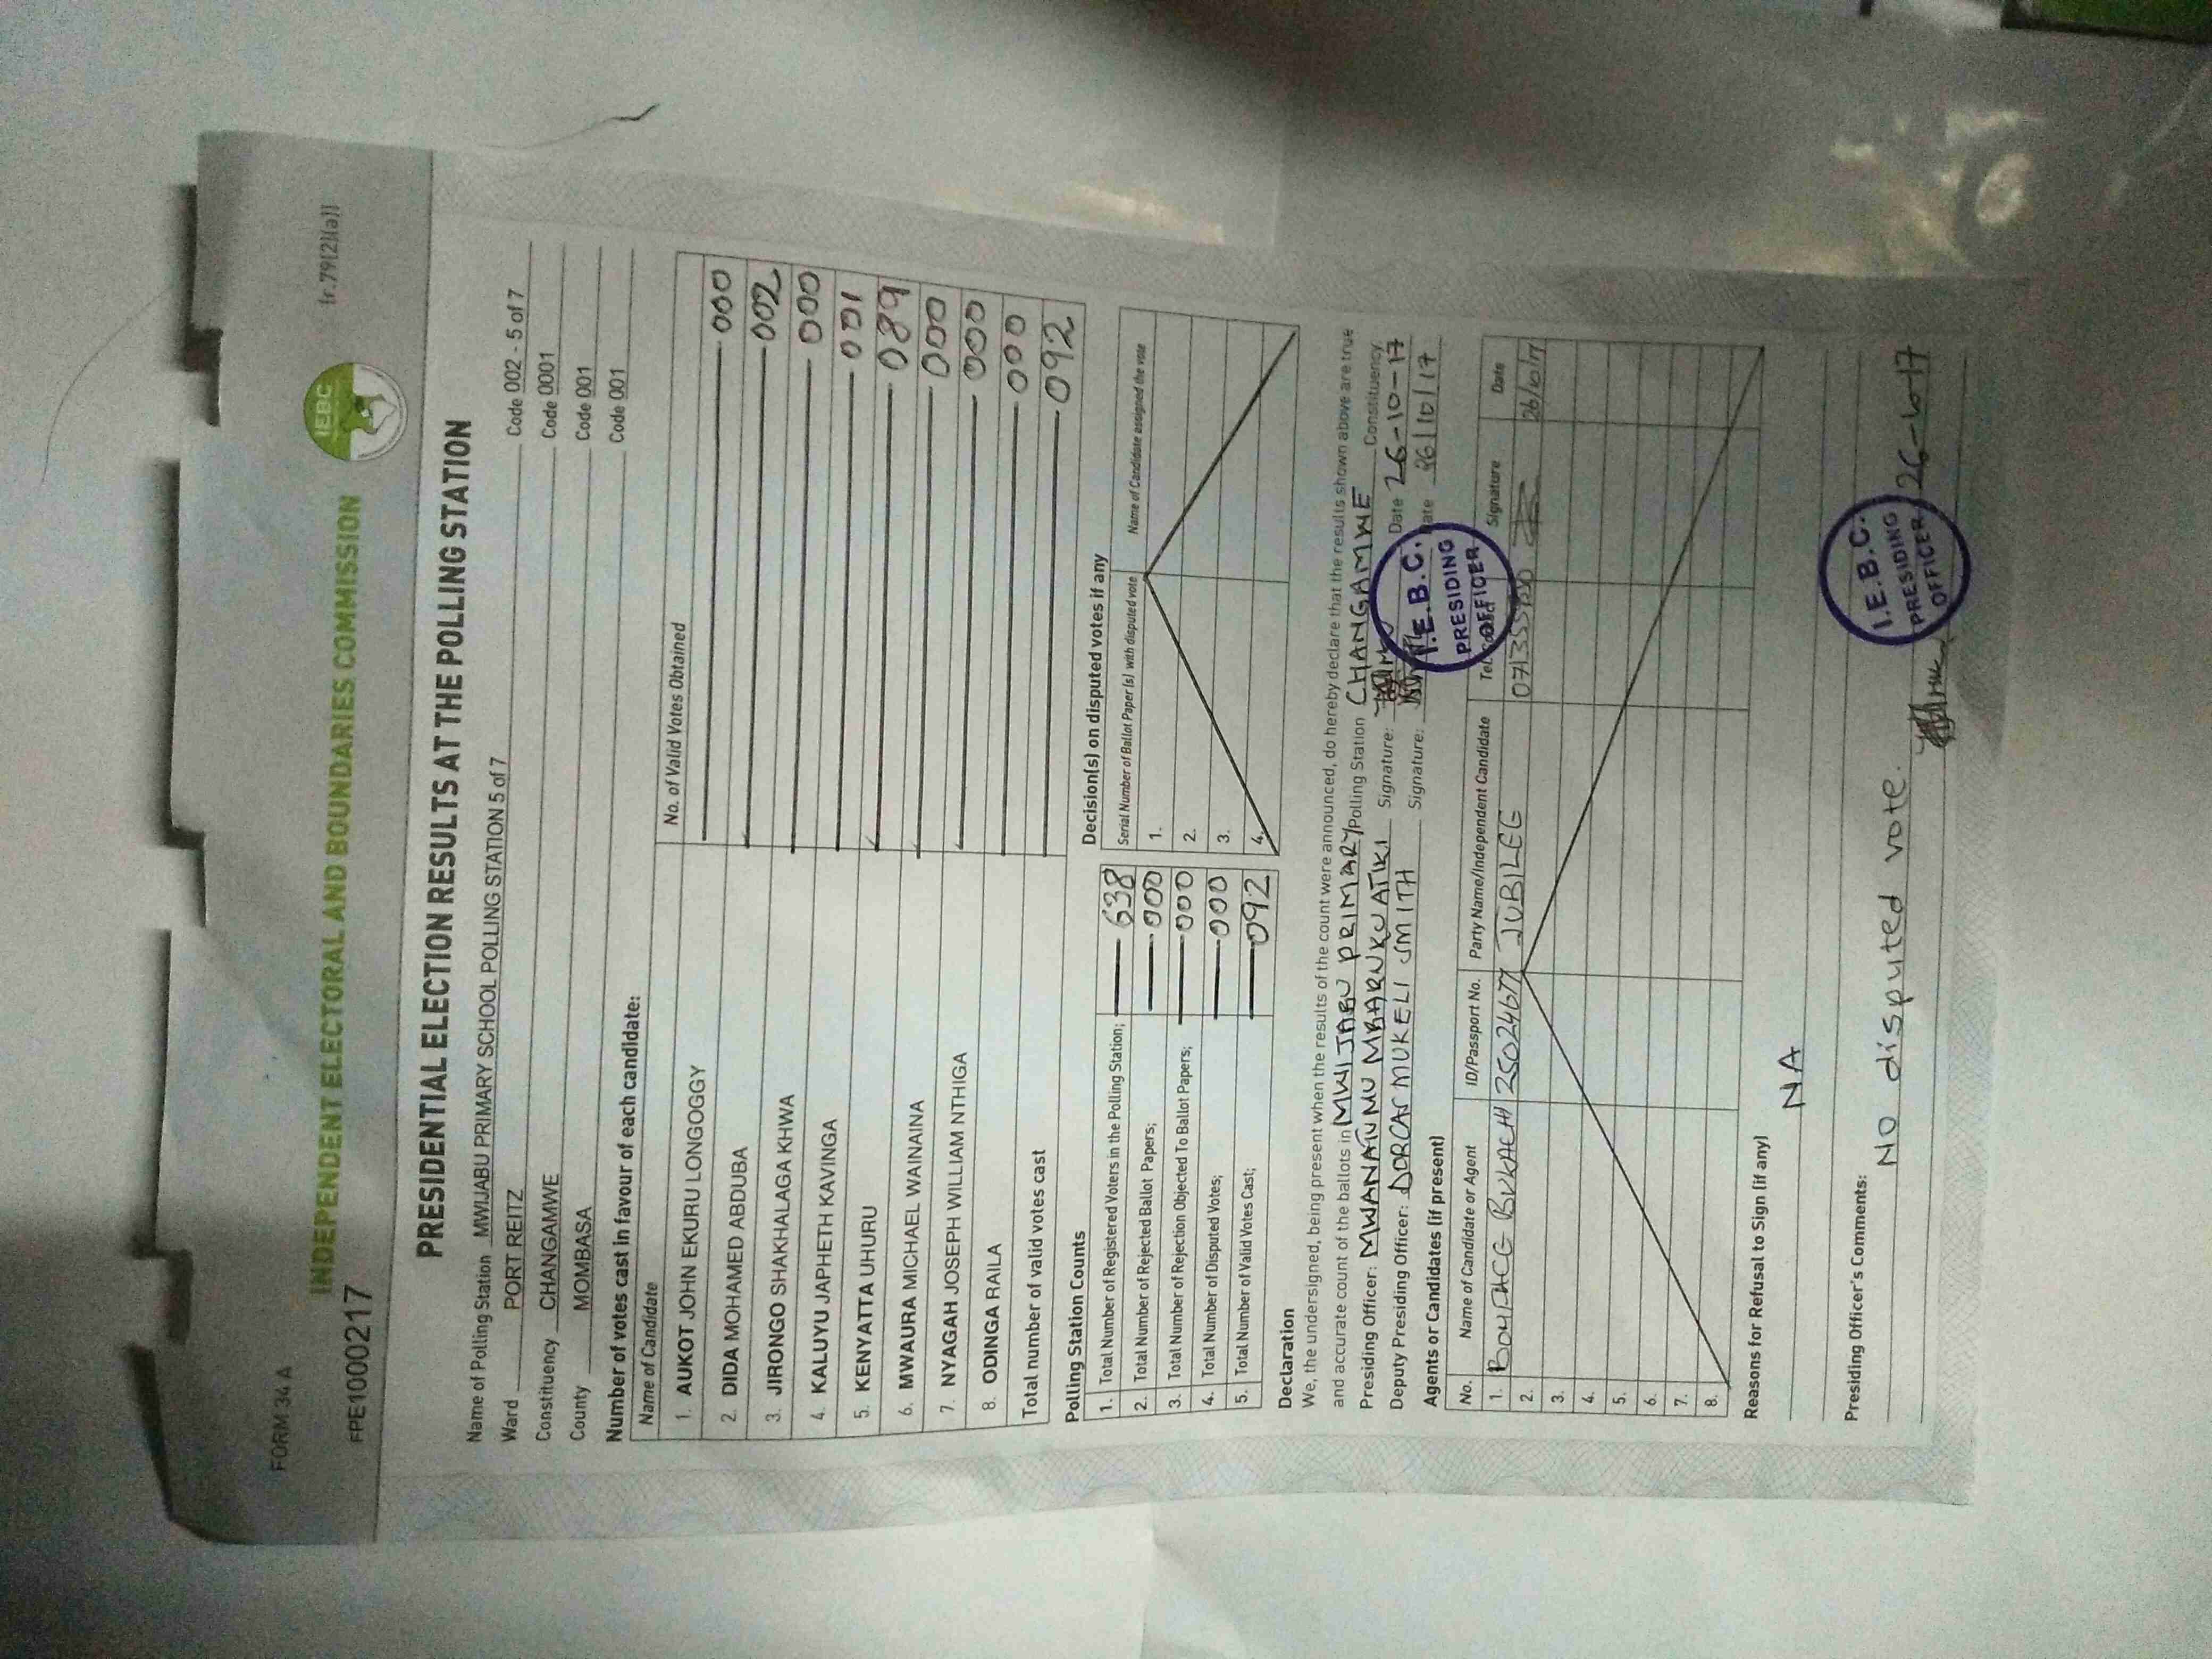 FORM 34 A
(r.79(2)(a))
IEBC
INDEPENDENT ELECTORAL AND BOUNDARIES COMMISSION
FPE1000217
PRESIDENTIAL ELECTION RESULTS AT THE POLLING STATION
Name of Polling Station MWIJABU PRIMARY SCHOOL POLLING STATION 5 of 7 Code 002 - 5 of 7
Ward PORT REITZ Code 0001
Constituency CHANGAMWE Code 001
County MOMBASA Code 001
Number of votes cast in favour of each candidate:
Name of Candidate No. of Valid Votes Obtained
1. AUKOT JOHN EKURU LONGOGGY 000
2. DIDA MOHAMED ABDUBA 002
3. JIRONGO SHAKHALAGA KHWA 000
4. KALUYU JAPHETH KAVINGA 001
5. KENYATTA UHURU 089
6. MWAURA MICHAEL WAINAINA 000
7. NYAGAH JOSEPH WILLIAM NTHIGA 000
8. ODINGA RAILA 000
Total number of valid votes cast 092
Polling Station Counts
1. Total Number of Registered Voters in the Polling Station; 638
2. Total Number of Rejected Ballot Papers; 000
3. Total Number of Rejection Objected To Ballot Papers; 000
4. Total Number of Disputed Votes; 000
5. Total Number of Valid Votes Cast; 092
Decision(s) on disputed votes if any
Serial Number of Ballot Paper (s) with disputed vote Name of Candidate assigned the vote
1.
2.
3.
4.
Declaration
We, the undersigned, being present when the results of the count were announced, do hereby declare that the results shown above are true
and accurate count of the ballots in MWIJABU PRIMARY Polling Station CHANGAMWE Constituency
Presiding Officer: MWANAINU MBARUKU ATIKI Signature: Date 26-10-17
Deputy Presiding Officer: DORCAS MUKELI SMITH Signature: Date 26/10/17
I.E.B.C. PRESIDING OFFICER
Agents or Candidates (if present)
No. Name of Candidate or Agent ID/Passport No. Party Name/Independent Candidate Signature Date
1. BONIFACE BUKACHI 25024677 JUBILEE 26/10/17
2.
3.
4.
5.
6.
7.
8.
Reasons for Refusal to Sign (if any)
NA
Presiding Officer's Comments:
No disputed vote.
26-10-17
I.E.B.C. PRESIDING OFFICER